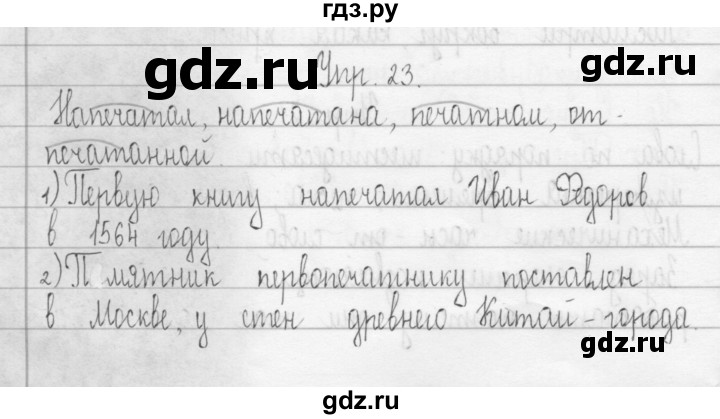 гдз.ру
gdz.ru gdz.ru
Упр. 23.
Напечатал, напечатана, печатном, от-
печатанной.
1) Первую книгу напечатал Иван Фёдоров
в 1564 году.
2) П мятник первопечатнику поставлен
в Москве, у стен древнего Китай-города.
gdz.ru gdz.ru
gdz.ru